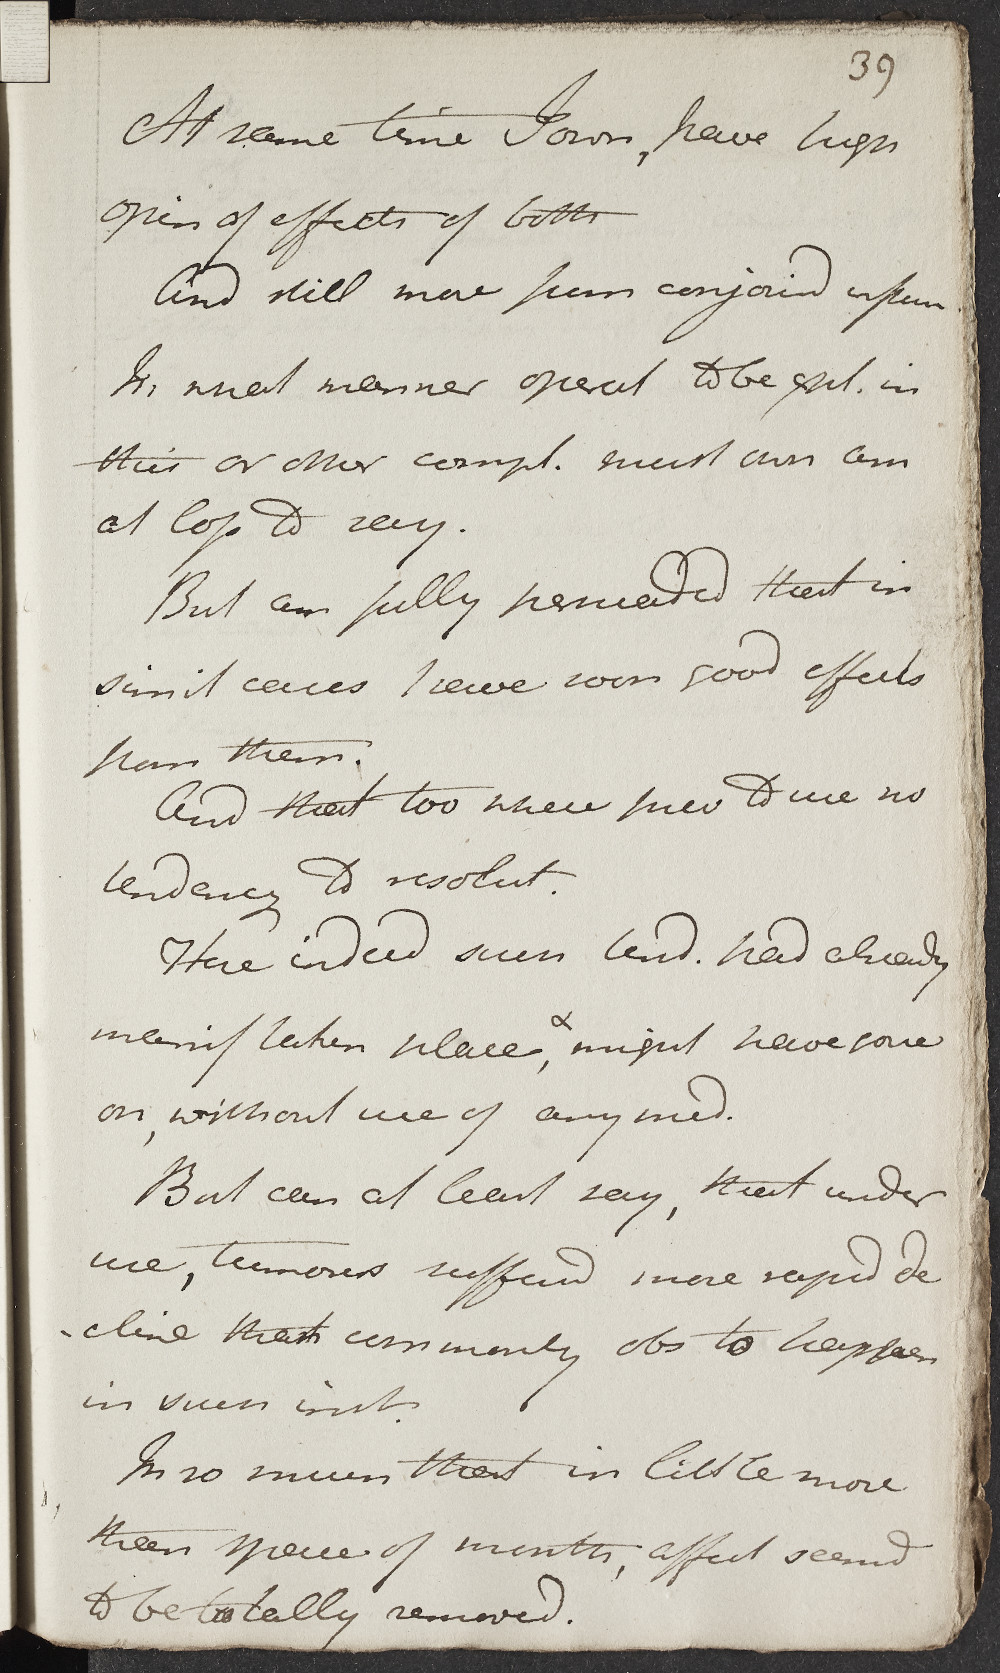 39
At same time I own, have high
opin of effects of both
And still more from conjoind
In what manner operat to be expl. in
this or other compl. must own am
at loss to say.
But am fully persuaded that in
simil cases have soon good effects
from them.
And that too where prev to use no
tendency to resolut.
Here indeed such tend. had already
manif taken place, & might have gone
on, without use of any med.
But can at least say, that under
use, tumores sufferd more rapid de
-cline than commonly obs to happen
in such inst.
In so much that in little more
than space of month, affect seemd
to be totally removed.